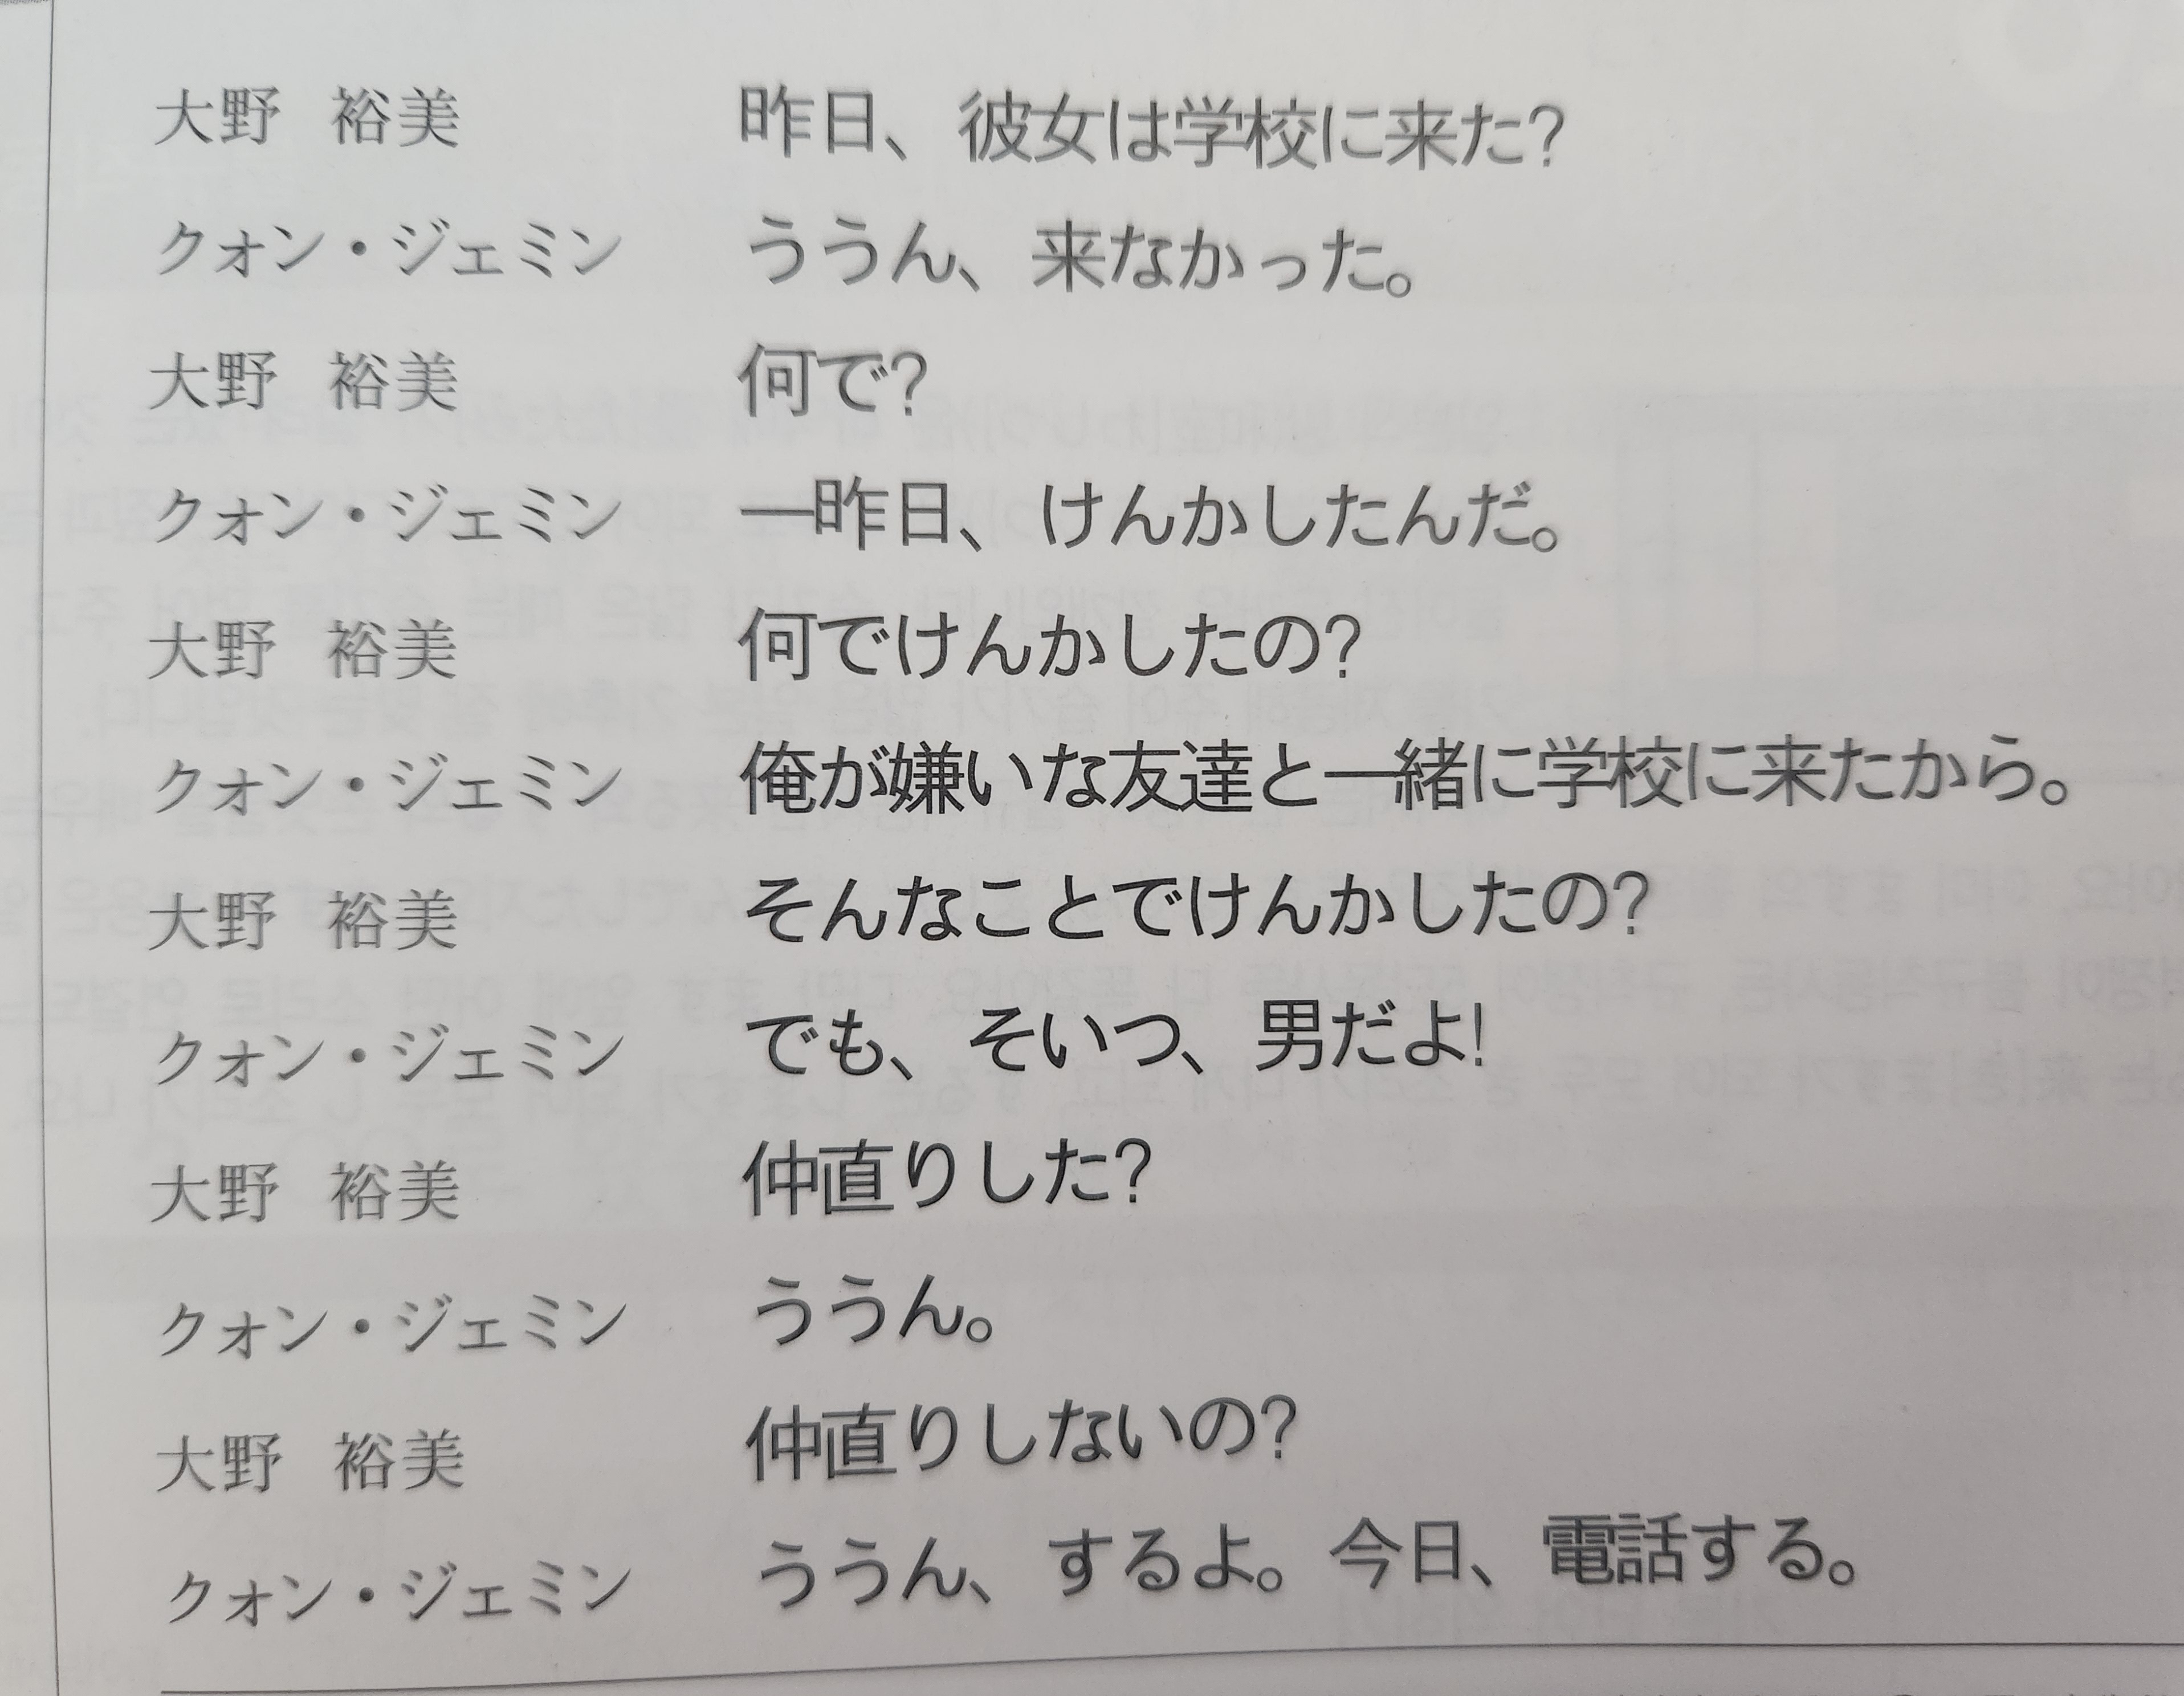 大野 裕美 昨日、彼女は学校に来た?
クォン・ジェミン ううん、来なかった。
大野 裕美 何で?
クォン・ジェミン 一昨日、けんかしたんだ。
大野 裕美 何でけんかしたの?
クォン・ジェミン 俺が嫌いな友達と一緒に学校に来たから。
大野 裕美 そんなことでけんかしたの?
クォン・ジェミン でも、そいつ、男だよ!
大野 裕美 仲直りした?
クォン・ジェミン ううん。
大野 裕美 仲直りしないの?
クォン・ジェミン ううん、するよ。今日、電話する。